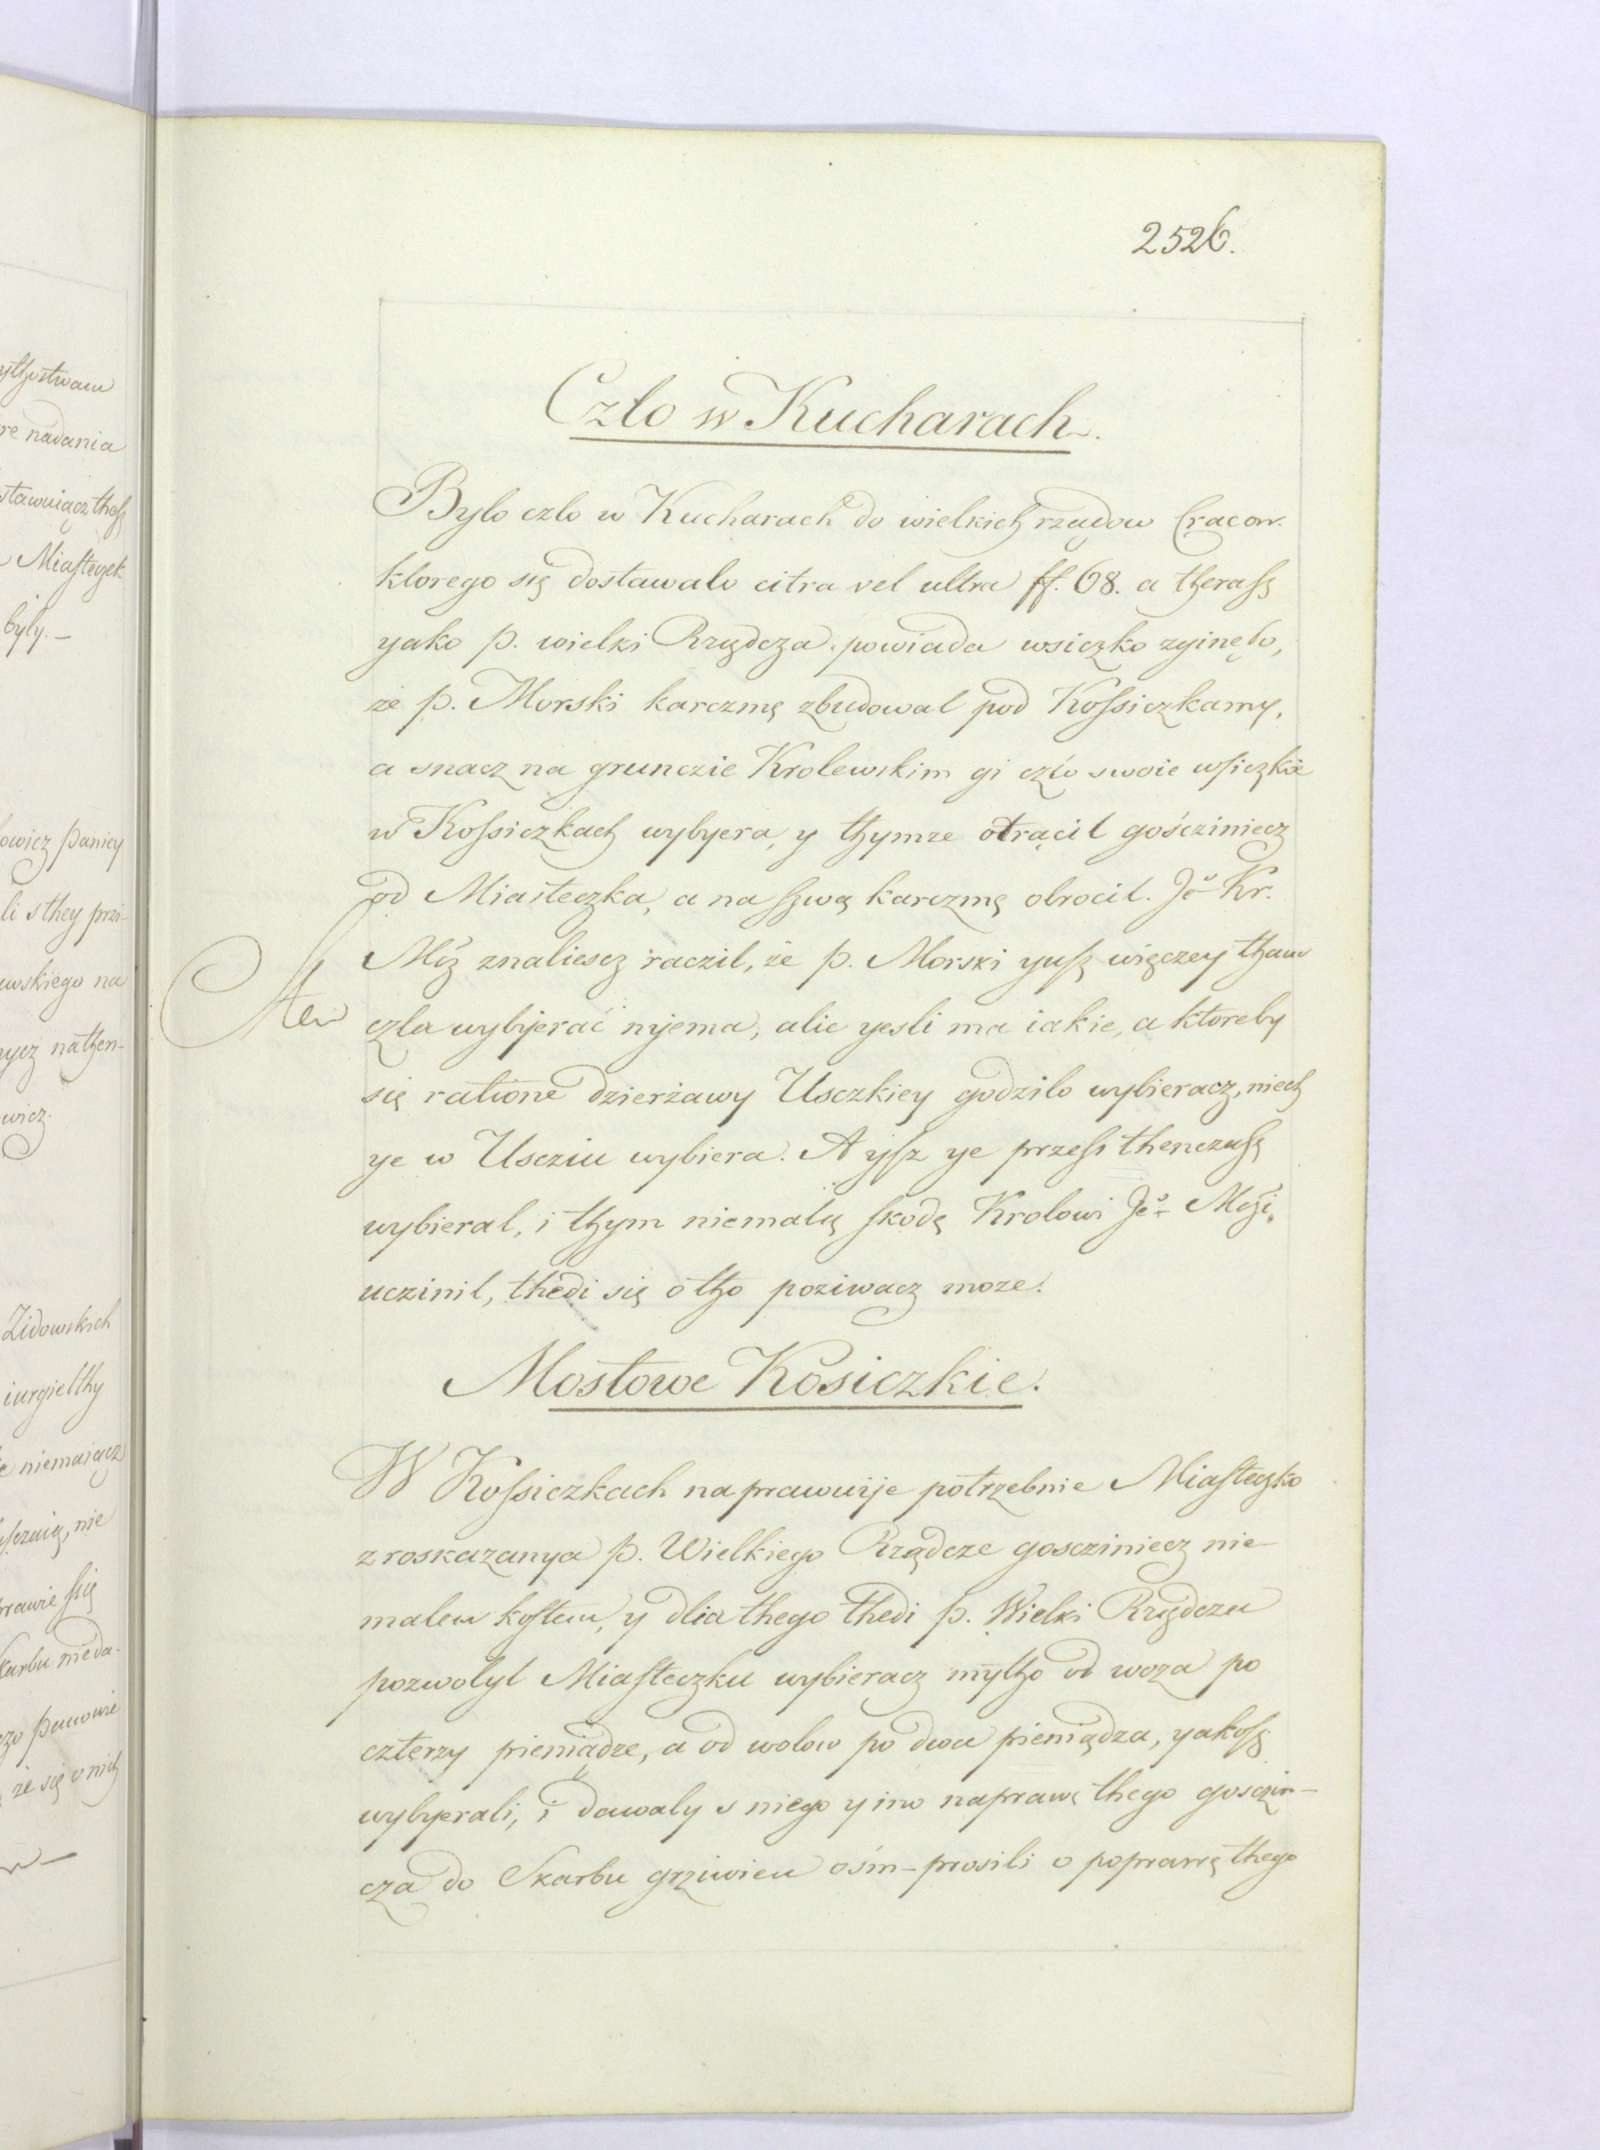 2526.
Czlo w Kucharach.
Bylo czlo w Kucharach do wielkich rządow Cracow.
ktorego się dostawalo citra vel ultra ff. 68. a therasz
yako p. wielki Rządcza powiada wsiczko zginęło,
że p. Morski karczmę zbudowal pod Kossiczkamy,
a snacz na grunczie Krolewskim gi czlo swoie wsiczkie
w Kossiczkach wybyera, y thymze otrącil gościniecz
od Miasteczka, a na szwą karczmę obrocil. Jeo Kr.
Mcz znaliescz raczil, że p. Morski yusz więczey tham
czla wybyerać nyema, alie yesli ma iakie, a ktoreby
się ratione dzierżawy Usczkiey godzilo wybieracz, niech
ye w Uscziu wybiera. A ysz ye przesz thenczasz
wybieral, i thym niemalą skodę Krolowi Jeo Mczi
uczinil, thedi się o tho poziwacz moze.
Mostowe Kosiczkie.
W Kossiczkach naprawuije potrzebnie Miasteczko
z roskazanya p. Wielkiego Rządcze goscziniecz nie-
malem kosztem, y dlia thego thedi p. Wielki Rządcza
pozwolyl Miasteczku wybieracz mytho od woza po
czterzy pieniądze, a od wolow po dwa pieniądza, yakosz
wybyerali, i dawaly s niego y ino naprawę thego gosczin-
cza do Skarbu grziwien ośm - prosili o poprawę thego
ythostwam
re nadania
stawuiącz thosz
Miasteczek
byly. -
owicz Paniey
li s they przi-
wskiego na
nycz nathen-
wicz.
Zidowskich
iurgielthy
e niemaiącz
nie
prawie się
Skarbu nieda-
czo Panowie
że się o nich